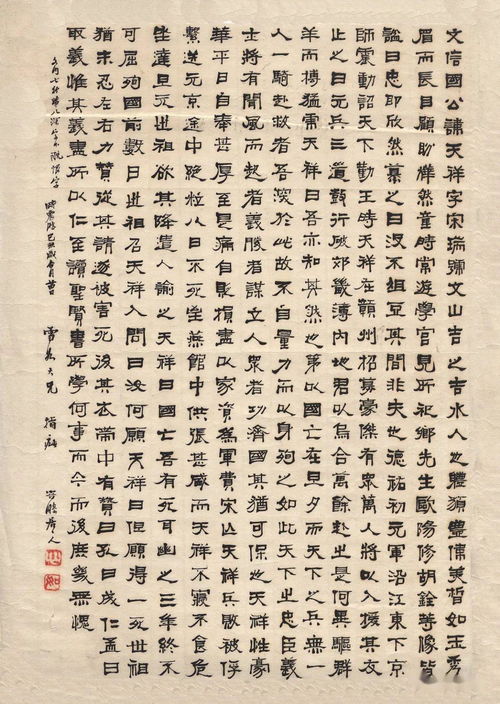 文信國公諱天祥字宋瑞號文山吉之吉水人也體貌豐偉美皙如玉秀
眉而長目顧盼燁然童時常遊學官見所祀鄉先生歐陽修胡銓等像皆
謚曰忠即欣然慕之曰沒不俎豆其間非夫也德祐初元軍沿江東下京
師震動詔天下勤王時天祥在贛州招募豪傑有眾萬人將以入援其友
止之曰元兵三道鼓行破郊畿薄內地君以烏合萬餘赴之是何異驅群
羊而搏猛虎天祥曰吾亦知其然也第以國亡在旦夕而天下之兵無一
人一騎赴救者吾深於此故不自量力而以身殉之如此天下忠臣義
士將有聞風而起者義勝者謀立人眾者功濟國其猶可保也天祥性豪
華平日自奉甚厚至是痛自貶損盡以家資為軍費宋亡天祥兵敗被俘
繫送元京途中絕粒八日不死至燕館中供張甚盛而天祥不寢不食危
坐達旦元世祖欲其降遣人諭之天祥曰國亡吾有死耳幽之三年終不
可屈殉國前數日世祖召天祥入問曰汝何願天祥曰但願得一死世祖
猶未忍在右力贊從其請遂被害死後其衣帶中有贊曰孔曰成仁孟曰
取義惟其義盡所以仁至讀聖賢書所學何事而今而後庶幾無愧
大兄